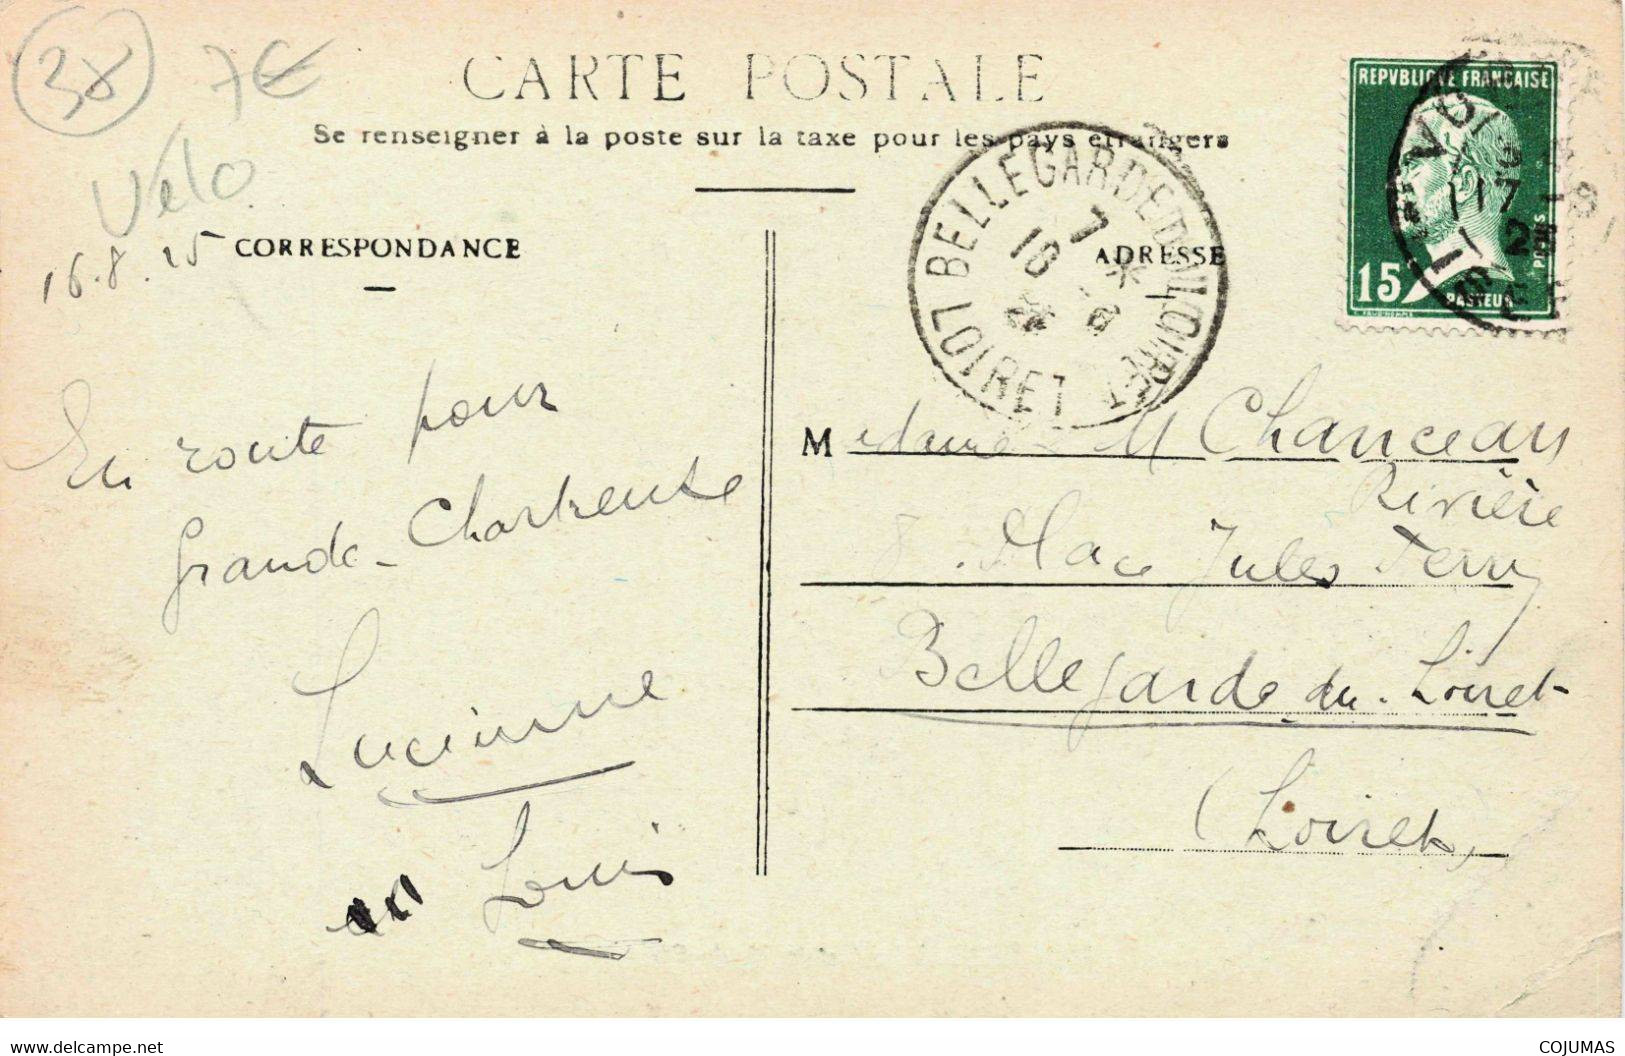 38
7€
Vélo
CARTE POSTALE
Se renseigner à la poste sur la taxe pour les pays étrangers
16.8.25
CORRESPONDANCE
ADRESSE
BELLEGARDE DU LOIRET
LOIRET
7 *
18 8
REPVBLIQVE FRANÇAISE
POSTES
15
PASTEUR
17 - 8
En route pour
Grande-Chartreuse
Lucienne
Louis
Madame M Chanceau
Rivière
8. Place Jules Ferry
Bellegarde-du-Loiret
(Loiret)
www.delcampe.net
COJUMAS